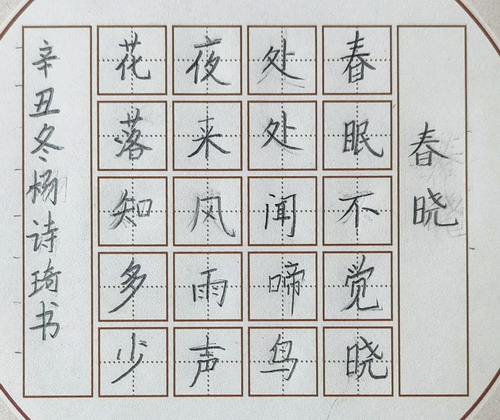 春晓
春眠不觉晓
处处闻啼鸟
夜来风雨声
花落知多少
辛丑冬杨诗琦书